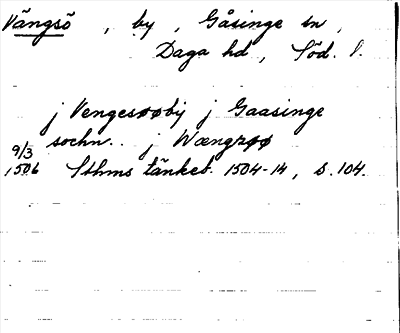 Vängsö, by, Gåsinge sn,
Daga hd, Söd. l.
j Vengesøøbÿ j Gaasinge
sochn.. j Wængzøø
9/3
1506 Sthms tänkeb. 1504-14, s. 104.